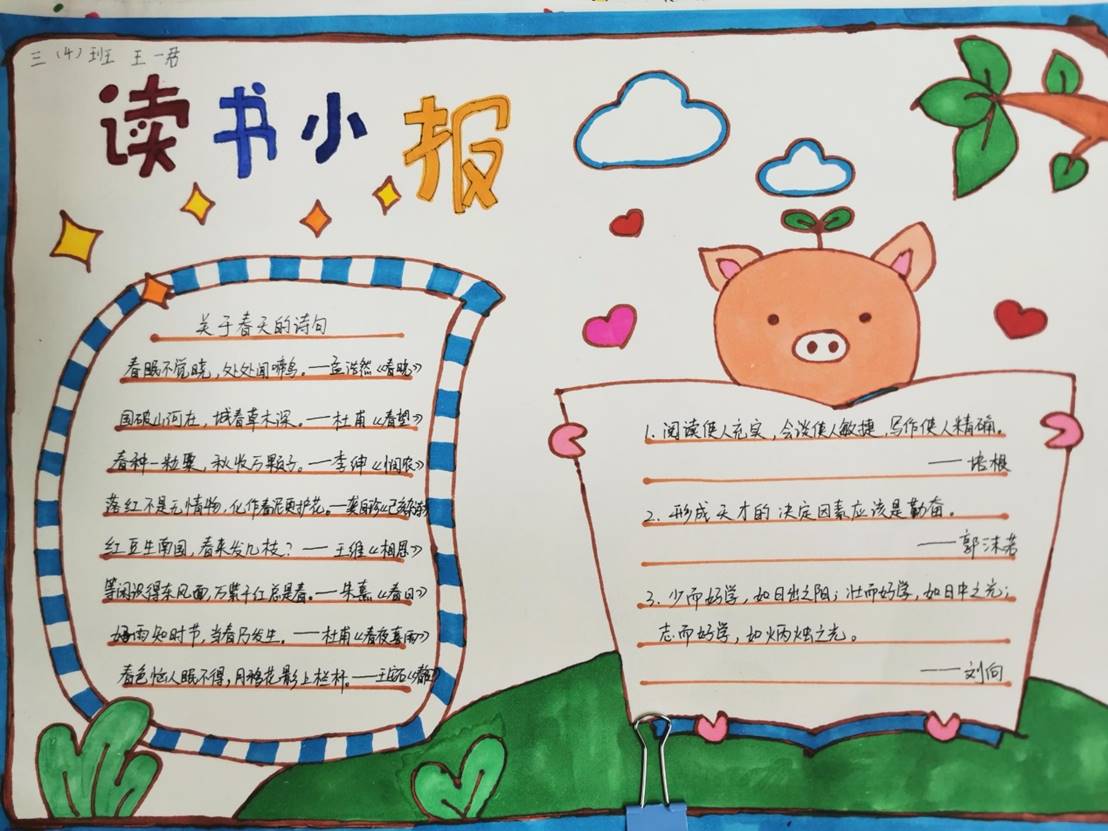 三（4）班 王一君
读书小报
关于春天的诗句
春眠不觉晓，处处闻啼鸟。——孟浩然《春晓》
国破山河在，城春草木深。——杜甫《春望》
春种一粒粟，秋收万颗子。——李绅《悯农》
落红不是无情物，化作春泥更护花。——龚自珍《己亥杂诗》
红豆生南国，春来发几枝？——王维《相思》
等闲识得东风面，万紫千红总是春。——朱熹《春日》
好雨知时节，当春乃发生。——杜甫《春夜喜雨》
春色恼人眠不得，月移花影上栏杆。——王安石
1. 阅读使人充实，会谈使人敏捷，写作使人精确。
——培根
2. 形成天才的决定因素应该是勤奋。
——郭沫若
3. 少而好学，如日出之阳；壮而好学，如日中之光；
志而好学，如炳烛之光。
——刘向